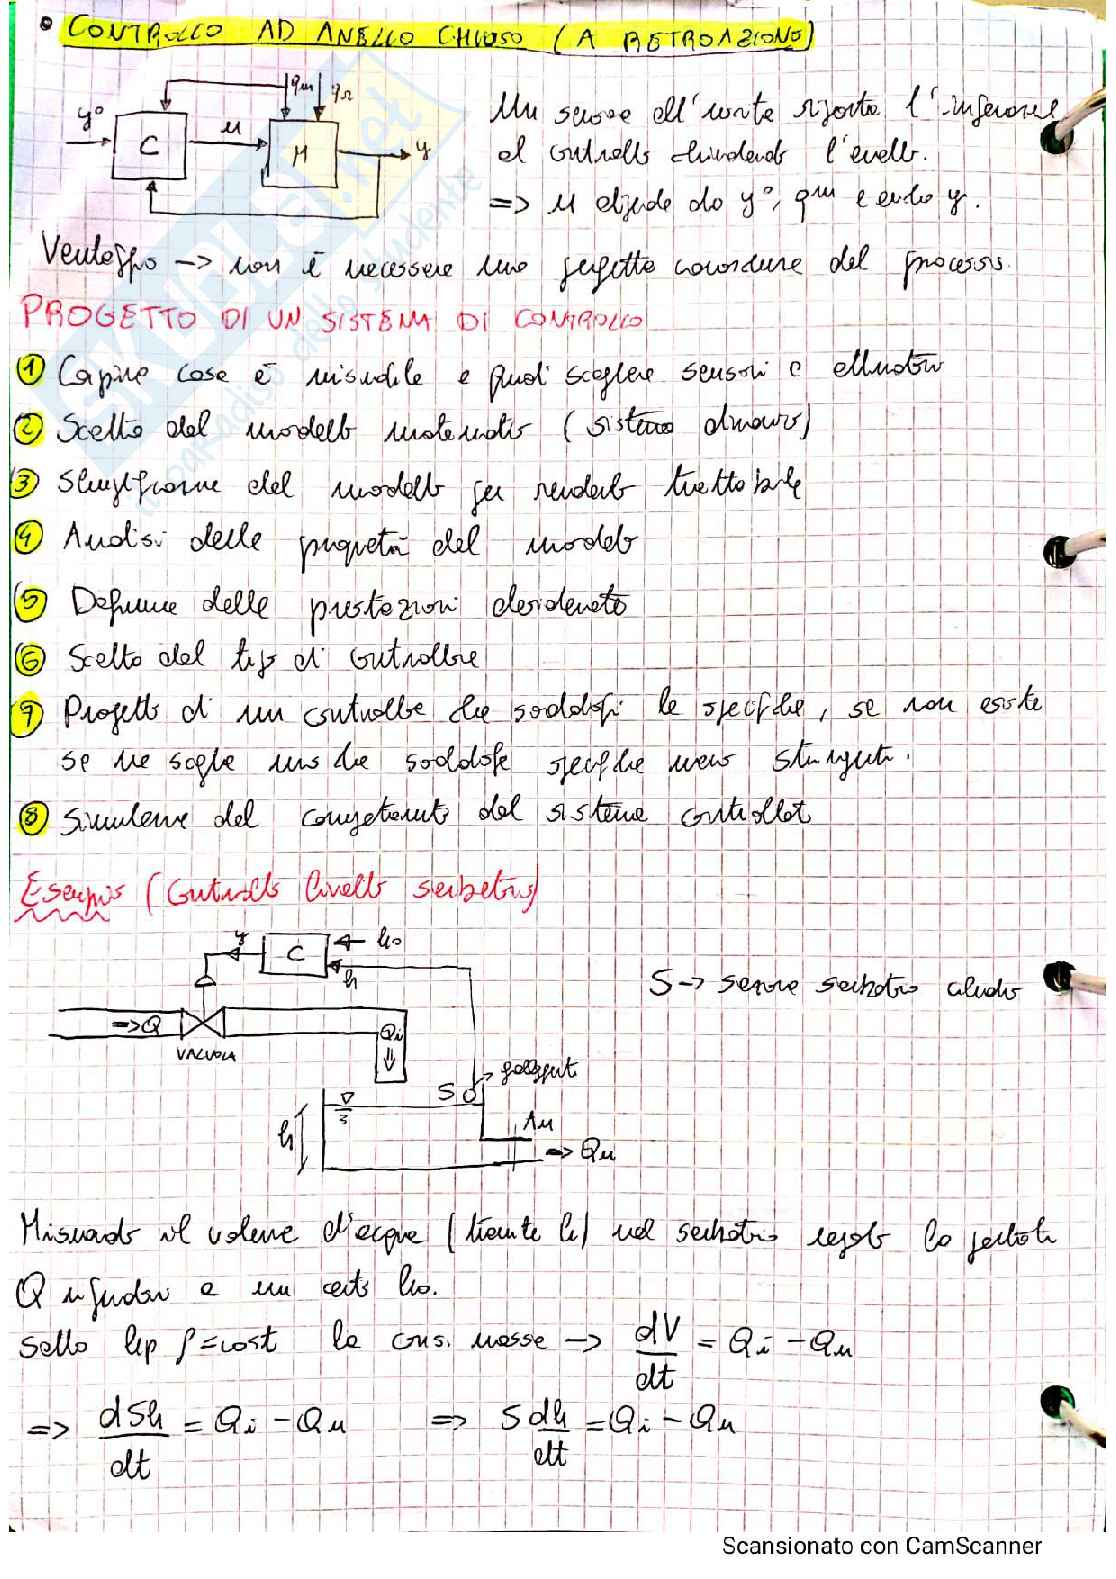 • CONTROLLO AD ANELLO CHIUSO (A RETROAZIONE)
y° C u M y qm qn
Un sensore all'uscita riporta l'informazione
al controllo chiudendo l'anello.
=> u dipende da y°, qm e anche y.
Vantaggio -> non è necessaria una perfetta conoscenza del processo.
PROGETTO DI UN SISTEMA DI CONTROLLO
1 Capire cosa è misurabile e quindi scegliere sensori e attuatori
2 Scelta del modello matematico (sistema dinamico)
3 Semplificazione del modello per renderlo trattabile
4 Analisi delle proprietà del modello
5 Definizione delle prestazioni desiderate
6 Scelta del tipo di controllore
7 Progetto di un controllore che soddisfi le specifiche, se non esiste
se ne sceglie uno che soddisfa specifiche meno stringenti.
8 Simulazione del comportamento del sistema controllato
Esempio (Controllo livello serbatoio)
y C <- ho
h
S -> sezione serbatoio cilindrico
=> Q Qi
VALVOLA
S galleggiante
h Au => Qu
Misurando il volume d'acqua (tramite h) nel serbatoio regolo la portata
Q in fondo a un certo ho.
Sotto hp ρ=cost la cons. massa -> dV/dt = Qi - Qu
=> dSh/dt = Qi - Qu => S dh/dt = Qi - Qu
Scansionato con CamScanner
SKUOLA.net
il paradiso dello studente